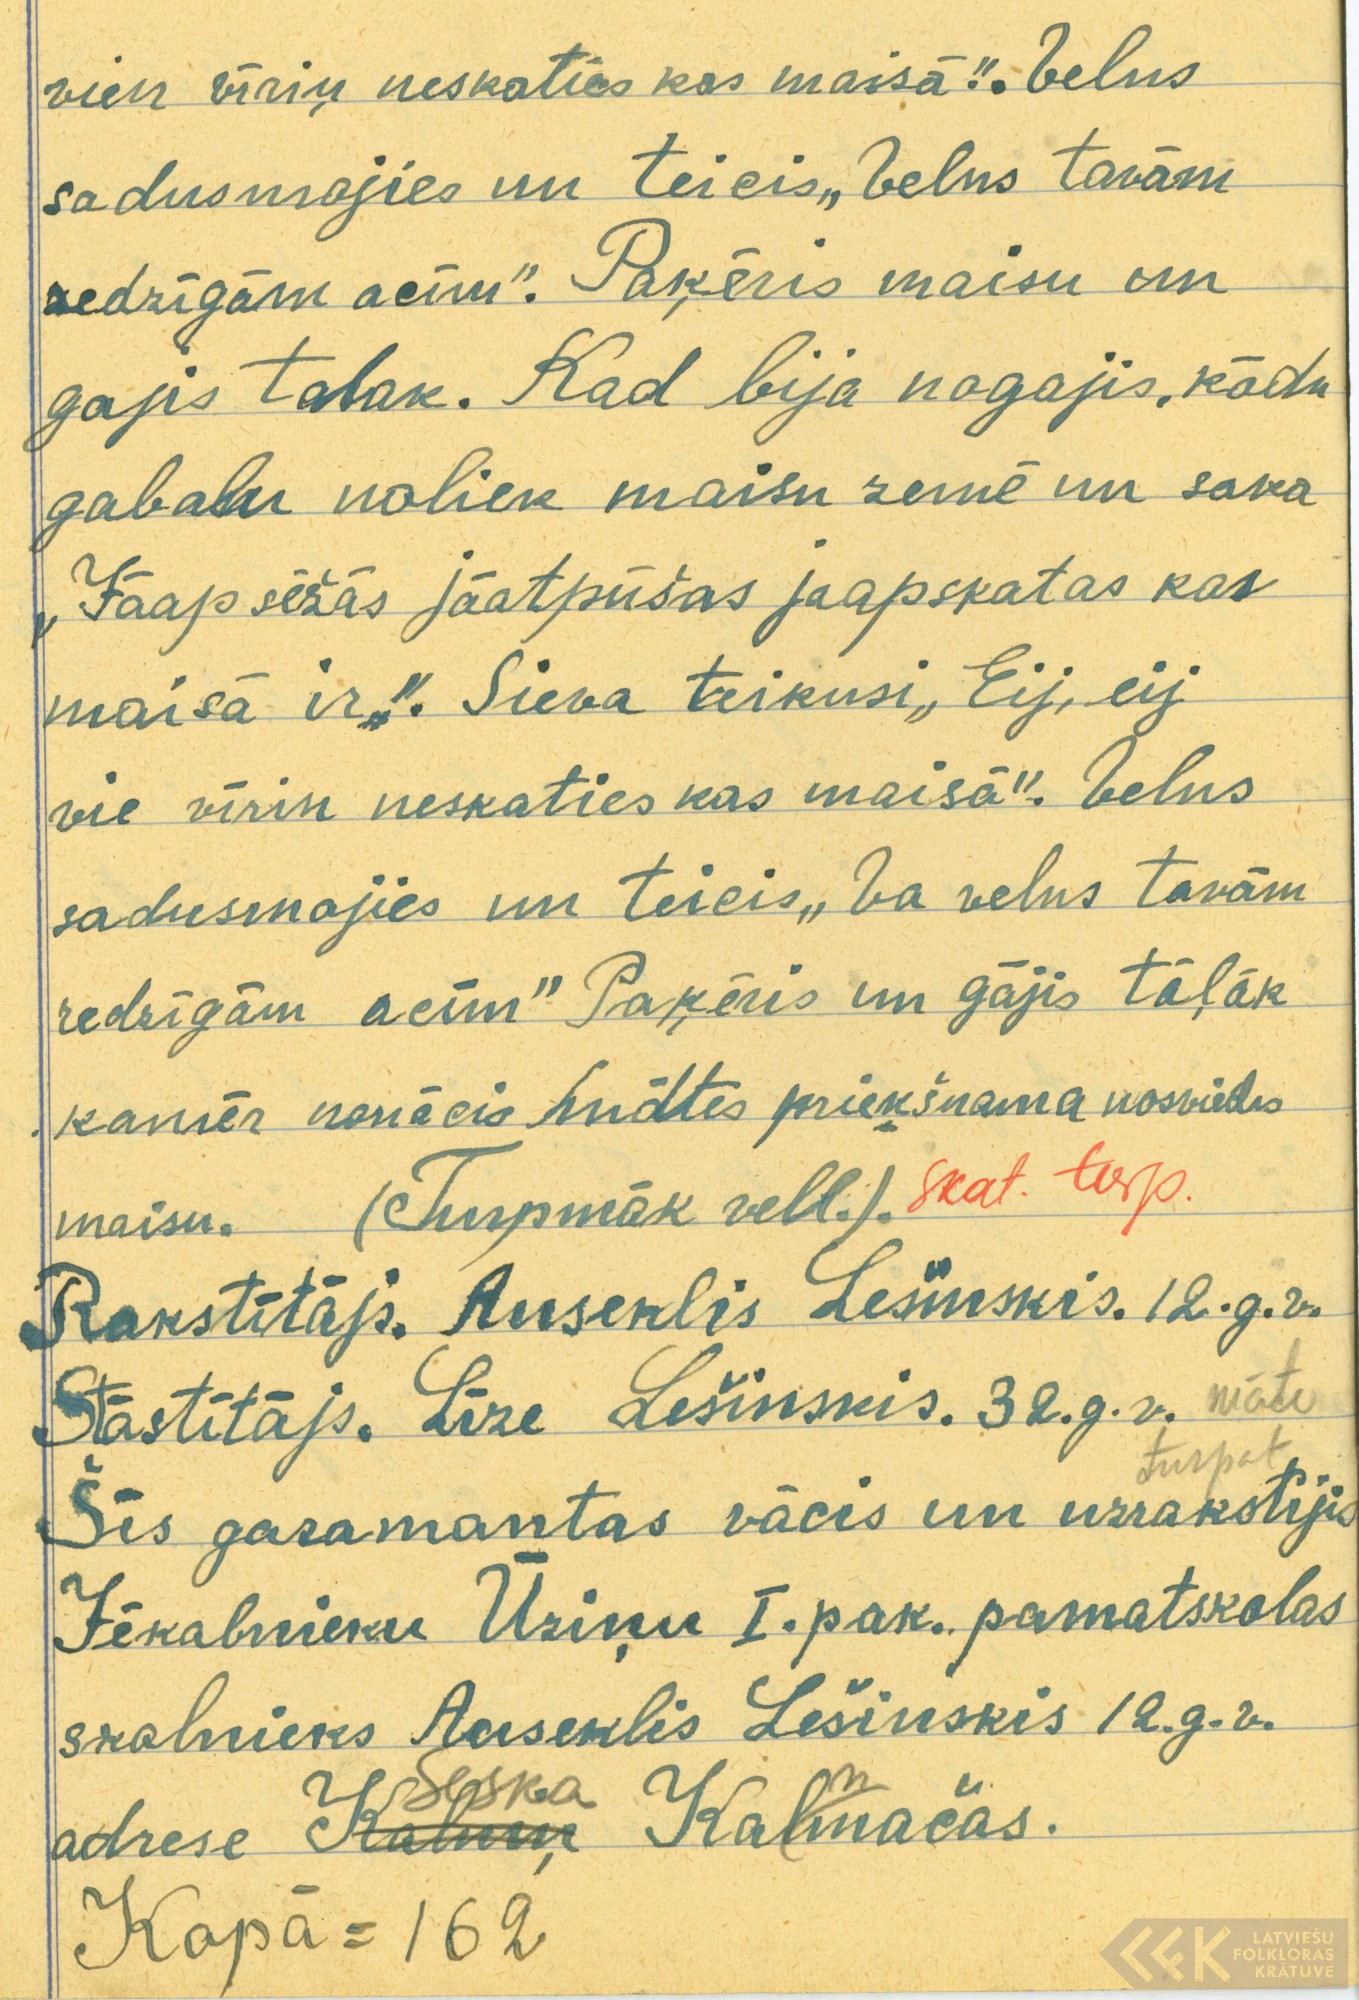 vien vīriņ neskaties kas maisā". Velns
sadusmojies un teicis„ Velns tavām
redzīgām acīm". Paķēris maisu un
gajis talak. Kad bija nogajis, kādu
gabalu noliek maisu zemē un saka
„Jāapsēžās jāatpūšas jaapskatas kas
maisā ir". Sieva teikusi„ Eij, eij
vie vīrin neskaties kas maisā". Velns
sadusmojies un teicis„ Va velns tavām
redzīgām acīm" Paķēris un gājis tāļāk
kamēr nonācis mātes priekšnama nosviedis
maisu. (Turpmāk vell.). skat. turp.
Rakstītājs. Auseklis Lešinskis. 12.g.v.
Stāstītājs. Līze Lešinskis. 32.g.v. māte
turpat
Šīs garamantas vācis un uzrakstījis
Jēkabnieku Ūziņu I. pak. pamatskolas
skolnieks Auseklis Lešinskis 12.g.v.
Seska n
adrese Kalnuņ Kalmačās.
Kopā = 162
LATVIEŠU
FOLKLORAS
KRĀTUVE